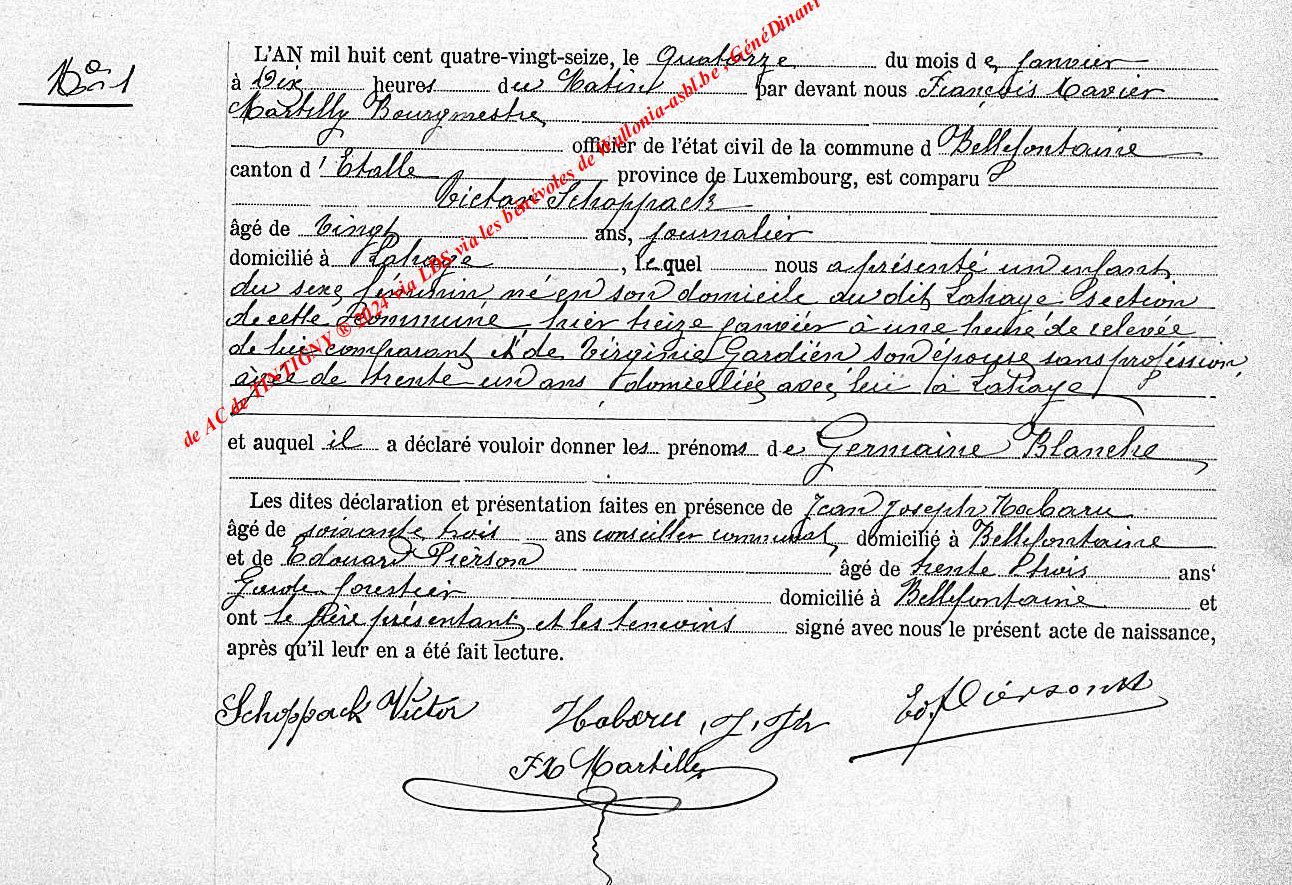 Nº 1
L'AN mil huit cent quatre-vingt-seize, le Quatorze du mois de Janvier
à Dix heures du Matin par devant nous François Xavier
Martilly Bourgmestre
officier de l'état civil de la commune d Bellefontaine
canton d'Etalle province de Luxembourg, est comparu
Victor Schoppach
âgé de Vingt ans, journalier
domicilié à Lahage, lequel nous a présenté un enfant
du sexe féminin né en son domicile au dit Lahage Section
de cette Commune hier treize janvier à une heure de relevée
de lui comparant et de Virginie Gardien son épouse sans profession,
agée de trente un ans domiciliée avec lui à Lahage
et auquel il a déclaré vouloir donner les prénoms de Germaine Blanche
Les dites déclaration et présentation faites en présence de Jean Joseph Habaru
âgé de soixante trois ans conseiller communal, domicilié à Bellefontaine
et de Edouard Pierson âgé de trente trois ans
Garde forestier domicilié à Bellefontaine et
ont le père présentant et les temoins signé avec nous le présent acte de naissance,
après qu'il leur en a été fait lecture.
Schoppach Victor Habaru, J, Jh Ed. Pierson
FX Martilly
de AC de TINTIGNY ® 2024 via LDS via les bénévoles de Wallonia-asbl.be, GénéDinant